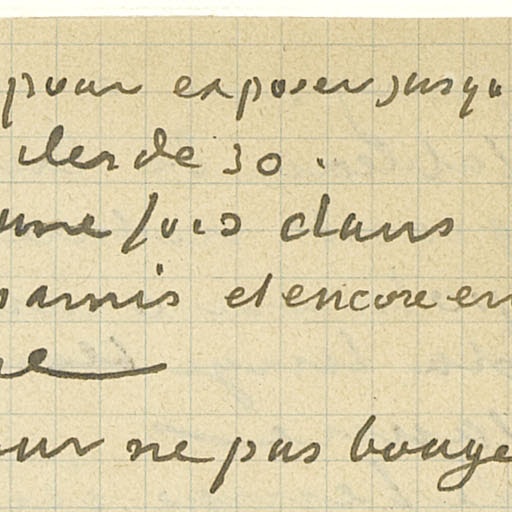 pour exposer jusqu
de 30.
une fois dans
et encore en
ur ne pas bouge